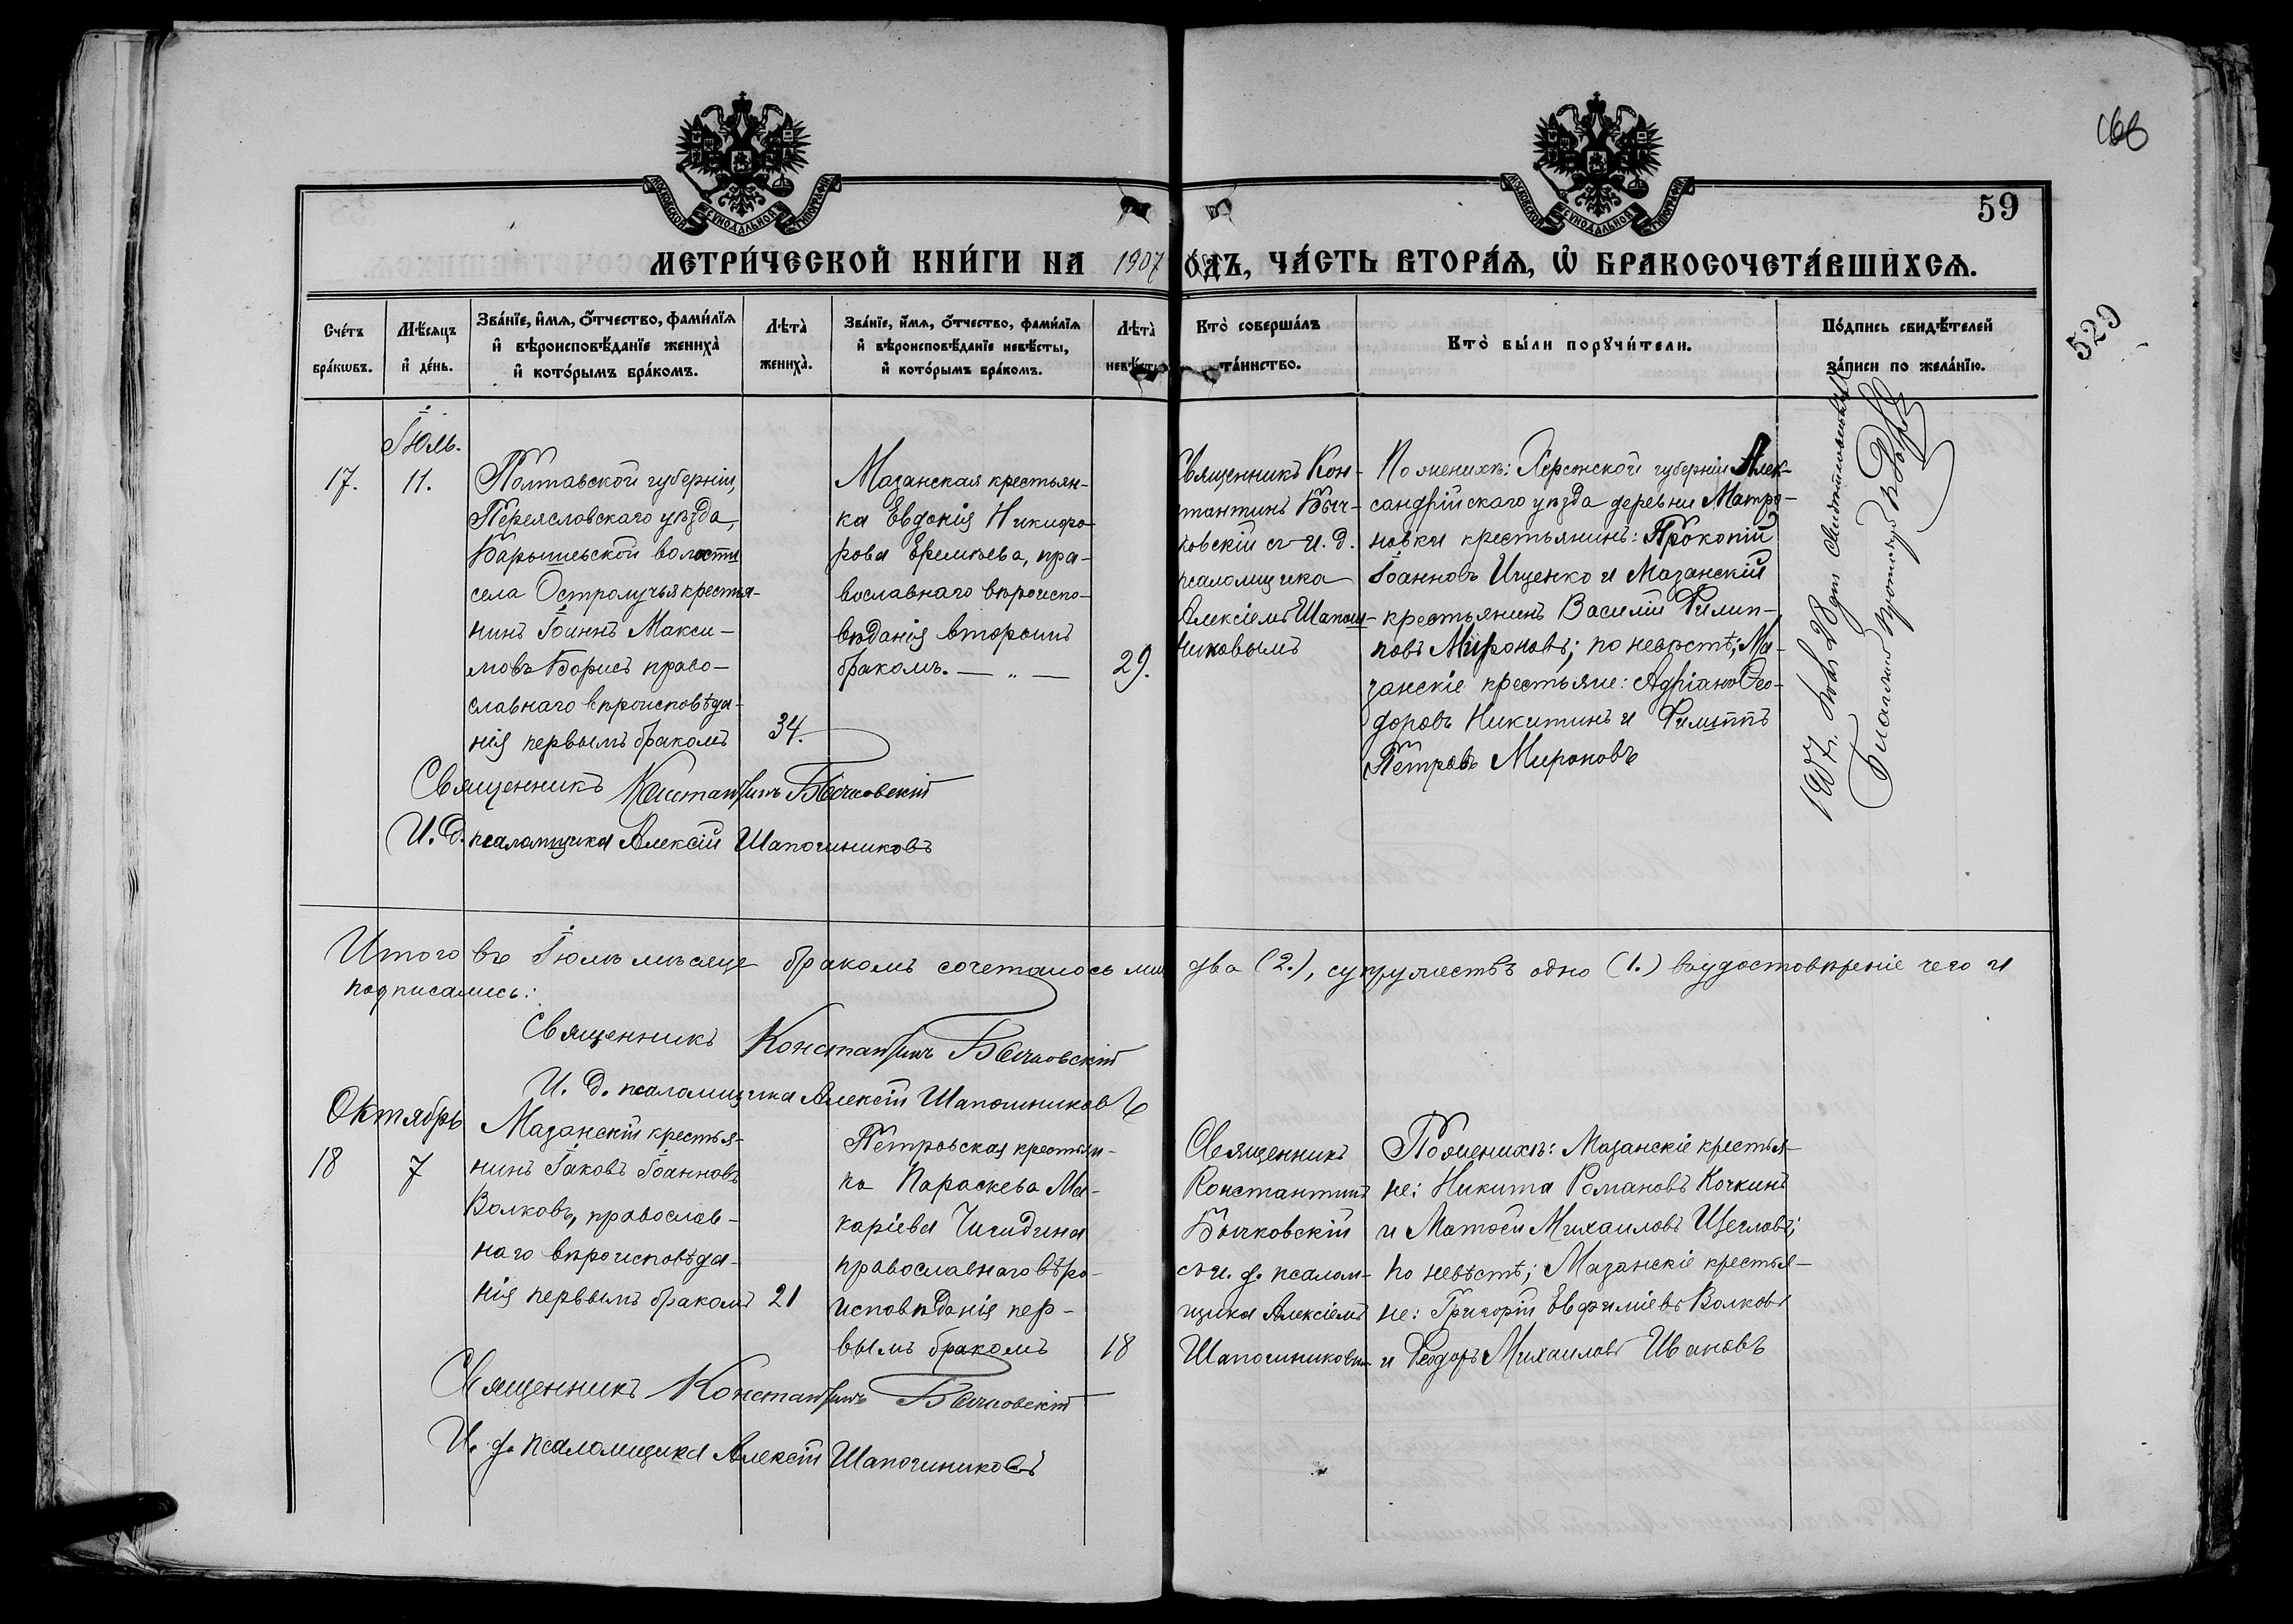 168
59
529
МОСКОВСКОЙ СѴНОДАЛЬНОЙ ТИПОГРАФІИ
МОСКОВСКОЙ СѴНОДАЛЬНОЙ ТИПОГРАФІИ
МЕТРИ́ЧЕСКОЙ КНИ́ГИ НА 1907 ОДЪ, ЧА́СТЬ ВТОРА́Ѧ, Ѽ БРАКОСОЧЕТА́ВШИХСѦ.
Сче́тъ
бра́кѡвъ.
Мѣ́сѧцъ
и҆ де́нь.
Зва́нїе, и҆́мѧ, ѻ҆́тчество, фами́лїѧ
и҆ вѣроисповѣ́данїе жениха̀
и҆ кото́рымъ бра́комъ.
Лѣта̀
жениха̀.
Зва́нїе, и҆́мѧ, ѻ҆́тчество, фами́лїѧ
и҆ вѣроисповѣ́данїе невѣ́сты,
и҆ кото́рымъ бра́комъ.
Лѣта̀
невѣ́сты
Кто̀ соверша́лъ
та́инство.
Кто̀ бы́ли порꙋчи́тели.
По́дпись свидѣ́телей
за́писи по жела́нїю.
Іюль.
17.
11.
Полтавской губерніи,
Переясловскаго уѣзда,
Барышевской волости
села Остролучья крестья-
нинъ Іоаннъ Макси-
мовъ Борисъ право-
славнаго вѣроисповѣда-
нія первымъ бракомъ
34.
Мазанская крестьян-
ка Евдокія Никифо-
рова Еремѣева, пра-
вославнаго вѣроиспо-
вѣданія вторымъ
бракомъ. — „ —
29.
Священникъ Кон-
тантинъ Быч-
ковскій съ И. д.
псаломщика
Алексіемъ Шапош-
никовымъ
По женихѣ: Херсонской губерніи Алек-
сандрійскаго уѣзда деревни Матро-
новки крестьянинъ: Прокопій
Іоанновъ Ищенко и Мазанскій
крестьянинъ Василій Филип-
повъ Мироновъ; по невѣстѣ; Ма-
занскіе крестьяне: Адріанъ Ѳео-
доровъ Никитинъ и Филиппъ
Петровъ Мироновъ
1907 г. 28 дня свидѣтельствовалъ
Благочинный Протоіерей
Священникъ Константинъ Бычковскій
И. д. псаломщика Алексій Шапошниковъ
Итого въ Іюлѣ мѣсяце бракомъ сочеталось два (2.), супружествъ одно (1.) во удостовѣреніе чего и
подписались:
Священникъ Константинъ Бычковскій
И. д. псаломщика Алексій Шапошниковъ
Октябрь
18
7
Мазанскій крестья-
нинъ Іаковъ Іоанновъ
Волковъ, православ-
наго вѣроисповѣда-
нія первымъ бракомъ
21
Петровская крестьян-
ка Параскева Ма-
каріева
православнаго вѣро-
исповѣданія пер-
вымъ бракомъ
18
Священникъ
Константинъ
Бычковскій
съ и. д. псалом-
щика Алексіемъ
Шапошниковым
По женихѣ: Мазанскіе крестья-
не: Никита Романовъ Кочкинъ
и Матѳей Михаиловъ Щегловъ;
по невѣстѣ; Мазанскіе крестья-
не: Григорій Евфиміевъ Волковъ
и Ѳеодоръ Михаиловъ Ивановъ
Священникъ Константинъ Бычковскій
И. д. псаломщика Алексій Шапошниковъ